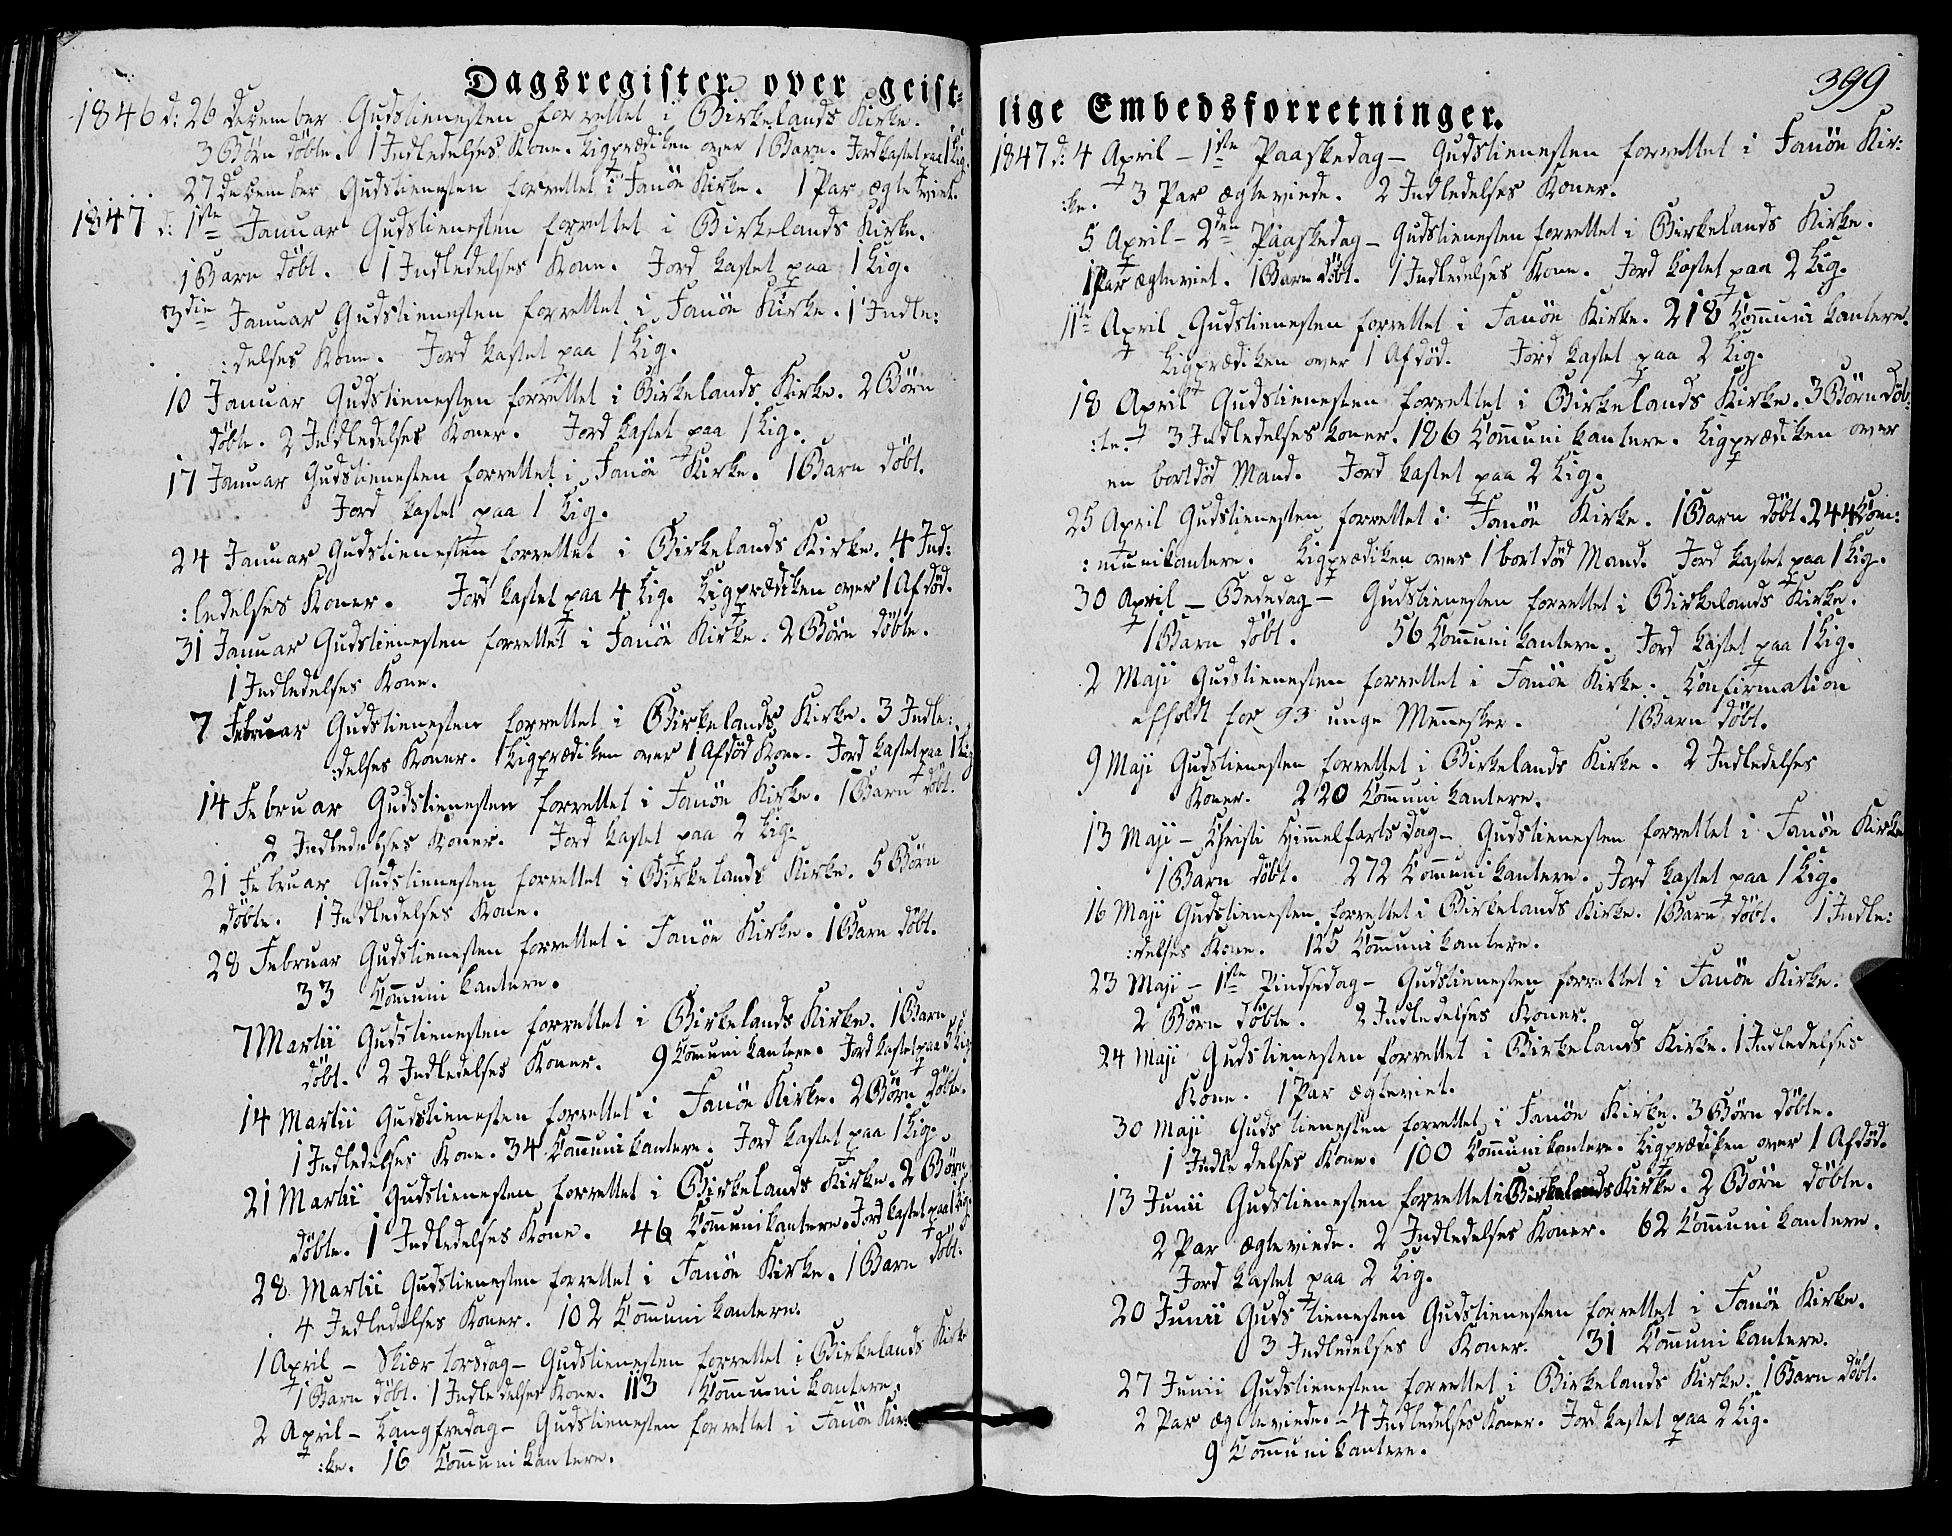 Dagsregister over geist-
1846 d: 26 December Gudstienesten forrettet i Birkelands Kirke.
3 Börn döbte. 1 Indledelses Kone. Ligprædiken over 1 Barn. Jord kastet paa 1 Lig.
27 December Gudstienesten forrettet i Fanöe Kirke. 1 Par ægteviet.
1847 d: 1ste Januar Gudstienesten forrettet i Birkelands Kirke.
1 Barn döbt. 1 Indledelses Kone. Jord kastet paa 1 Lig.
3die Januar Gudstienesten forrettet i Fanöe Kirke. 1 Indle:
:delses Kone. Jord kastet paa 1 Lig.
10 Januar Gudstienesten forrettet i Birkelands Kirke. 2 Börn
döbte. 2 Indledelses Koner. Jord kastet paa 1 Lig.
17 Januar Gudstienesten forrettet i Fanöe Kirke. 1 Barn döbt.
Jord kastet paa 1 Lig.
24 Januar Gudstienesten forrettet i Birkelands Kirke. 4 Ind:
:ledelses Koner. Jord kastet paa 4 Lig. Ligprædiken over 1 Afdöd.
31 Januar Gudstienesten forrettet i Fanöe Kirke. 2 Börn döbte.
1 Indledelses Kone.
7 Februar Gudstienesten forrettet i Birkelands Kirke. 3 Indle:
:delses Koner. Ligprædiken over 1 Afdöd Kone. Jord kastet paa 1 Lig
14 Februar Gudstienesten forrettet i Fanöe Kirke. 1 Barn döbt.
2 Indledelses Koner. Jord kastet paa 2 Lig.
21 Februar Gudstienesten forrettet i Birkelands Kirke. 5 Börn
döbte. 1 Indledelses Kone.
28 Februar Gudstienesten forrettet i Fanöe Kirke. 1 Barn döbt.
33 Communikantere.
7 Martii Gudstienesten forrettet i Birkelands Kirke. 1 Barn
döbt. 2 Indledelses Koner. 9 Communikantere. Jord kastet paa 5 Lig.
14 Martii Gudstienesten forrettet i Fanöe Kirke. 2 Börn döbte.
1 Indledelses Kone. 34 Communikantere. Jord kastet paa 1 Lig.
21 Martii Gudstienesten forrettet i Birkelands Kirke. 2 Börn
döbte. 1 Indledelses Kone. 46 Communikantere. Jord kastet paa 1 Lig.
28 Martii Gudstienesten forrettet i Fanöe Kirke. 1 Barn döbt.
4 Indledelses Koner. 102 Communikantere.
1 April – Skiær torsdag – Gudstienesten forrettet i Birkelands Kirke
1 Barn döbt. 1 Indledelses Kone. 113 Communikantere.
2 April – Langfredag – Gudstienesten forrettet i Fanöe Kir:
:ke. 16 Communikantere.
399
lige Embedsforretninger.
1847 d: 4 April – 1ste Paaskedag – Gudstienesten forrettet i Fanöe Kir:
:ke. 3 Par ægteviede. 2 Indledelses Koner.
5 April – 2den Paaskedag – Gudstienesten forrettet i Birkelands Kirke.
1 Par ægteviet. 1 Barn döbt. 1 Indledelses Kone. Jord kastet paa 2 Lig.
11te April Gudstienesten forrettet i Fanöe Kirke. 218 Communikantere.
Ligprædiken over 1 Afdöd. Jord kastet paa 2 Lig.
18 April Gudstienesten forrettet i Birkelands Kirke. 3 Börn döb:
:te. 3 Indledelses Koner. 186 Communikantere. Ligprædiken over
en bortdöd Mand. Jord kastet paa 2 Lig.
25 April Gudstienesten forrettet i Fanöe Kirke. 1 Barn döbt. 244 Com:
:munikantere. Ligprædiken over 1 bortdöd Mand. Jord kastet paa 1 Lig.
30 April – Bededag – Gudstienesten forrettet i Birkelands Kirke.
1 Barn döbt. 56 Communikantere. Jord kastet paa 1 Lig.
2 Maji Gudstienesten forrettet i Fanöe Kirke. Confirmation
afholdt for 93 unge Mennesker. 1 Barn döbt.
9 Maji Gudstienesten forrettet i Birkelands Kirke. 2 Indledelses
Koner. 220 Communikantere.
13 Maji – Christi Himmelfarts dag – Gudstienesten forrettet i Fanöe Kirke
1 Barn döbt. 272 Communikantere. Jord kastet paa 1 Lig.
16 Maji Gudstienesten forrettet i Birkelands Kirke. 1 Barn döbt. 1 Indle:
:delses Kone. 125 Communikantere.
23 Maji – 1ste Pindsedag – Gudstienesten forrettet i Fanöe Kirke.
2 Börn döbte. 2 Indledelses Koner.
24 Maji Gudstienesten forrettet i Birkelands Kirke. 1 Indledelses
Kone. 1 Par ægteviet.
30 Maji Gudstienesten forrettet i Fanöe Kirke. 3 Börn döbte.
1 Indledelses Kone. 100 Communikantere. Ligprædiken over 1 Afdöd.
13 Junii Gudstienesten forrettet i Birkelands Kirke. 2 Börn döbte.
2 Par ægteviede. 2 Indledelses Koner. 62 Communikantere.
Jord kastet paa 2 Lig.
20 Junii Gudstienesten Gudstienesten forrettet i Fanöe Kirke.
3 Indledelses Koner. 31 Communikantere.
27 Junii Gudstienesten forrettet i Birkelands Kirke. 1 Barn döbt.
2 Par ægteviede. – 4 Indledelses Koner. Jord kastet paa 2 Lig.
9 Communikantere.